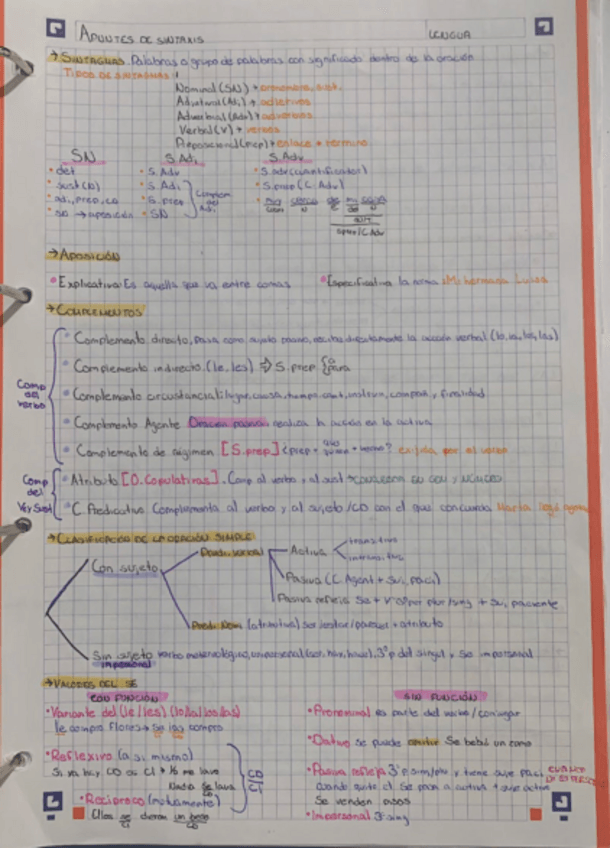 APUNTES DE SINTAXIS LENGUA
→ SINTAGMAS Palabras o grupo de palabras con significado dentro de la oración
TIPOS DE SINTAGMAS:
Nominal (SN) → pronombre, sust.
Adjetival (Adj) → adjetivos
Adverbial (Adv) → adverbios
Verbal (V) → verbos
Preposicional (prep) → enlace + término
SN S. Adj S. Adv
• det • S. Adv • S. adv (cuantificador)
• sust (N) • S. Adj • S. prep (C. Adv)
• adj, prep, CN • S. prep
• SN → aposición • SN
Complem del Adj
muy cerca de mi casa
→ APOSICIÓN
• Explicativa: Es aquella que va entre comas • Especificativa la norma: Mi hermana Luisa
→ COMPLEMENTOS
Comp del verbo
• Complemento directo, pasa como sujeto paciente, recibe directamente la acción verbal (lo, la, los, las)
• Complemento indirecto (le, les) ⇒ S. prep { a para
• Complemento circunstancial: lugar, causa, tiempo, cant, instrum, compañ, y finalidad
• Complemento Agente Oración pasiva realiza la acción en la activa
• Complemento de régimen [S. prep] ¿prep + qué quién + verbo? exigida por el verbo
Comp del V y Sust
• Atributo [O. Copulativas]. Comp al verbo y al sust
• C. Predicativo Complementa al verbo y al sujeto/CD con el que concuerda María llegó
→ CLASIFICACIÓN DE LA ORACIÓN SIMPLE
Con sujeto
Pred. verbal
Activa
transitiva
intransitiva
Pasiva (C. Agent + Suj. paci)
Pasiva refleja Se + V 3ªper plur/sing + Suj. paciente
Pred. Nom (atributiva) ser/estar/parecer + atributo
Sin sujeto verbo meteorológico, unipersonal (ser, hay, hace), 3ªp del singul y Se impersonal
impersonal
→ VALORES DEL SE
CON FUNCIÓN SIN FUNCIÓN
• Variante del (le/les) (lo/la/los/las)
Le compro flores → Se las compro
• Reflexivo (a sí mismo)
Si ya hay CD es CI → Yo me lavo
• Recíproco (mutuamente)
Ellos se dieron un beso
CI CD
CD CI
• Pronominal es parte del verbo/conjugar
• Dativo se puede omitir Se bebió un zumo
• Pasiva refleja 3ªp sim/plu y tiene suje paci
Se venden casas
• Impersonal 3ª sing